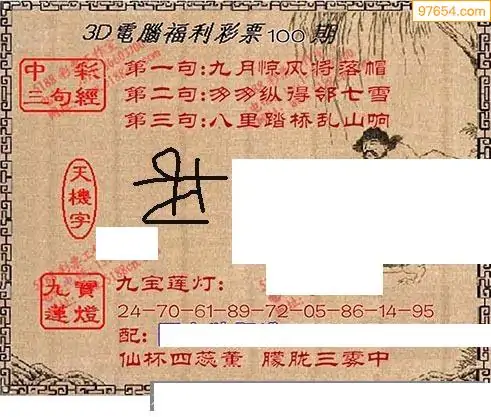 97654.com
3D電腦福利彩票100期
中彩
三句經
第一句:九月惊风将落帽
第二句:多多纵得邻七雪
第三句:八里踏桥乱山响
天機字
九寶
蓮燈
九宝莲灯:
24-70-61-89-72-05-86-14-95
配:
仙杯四蕊薰 朦胧三雾中